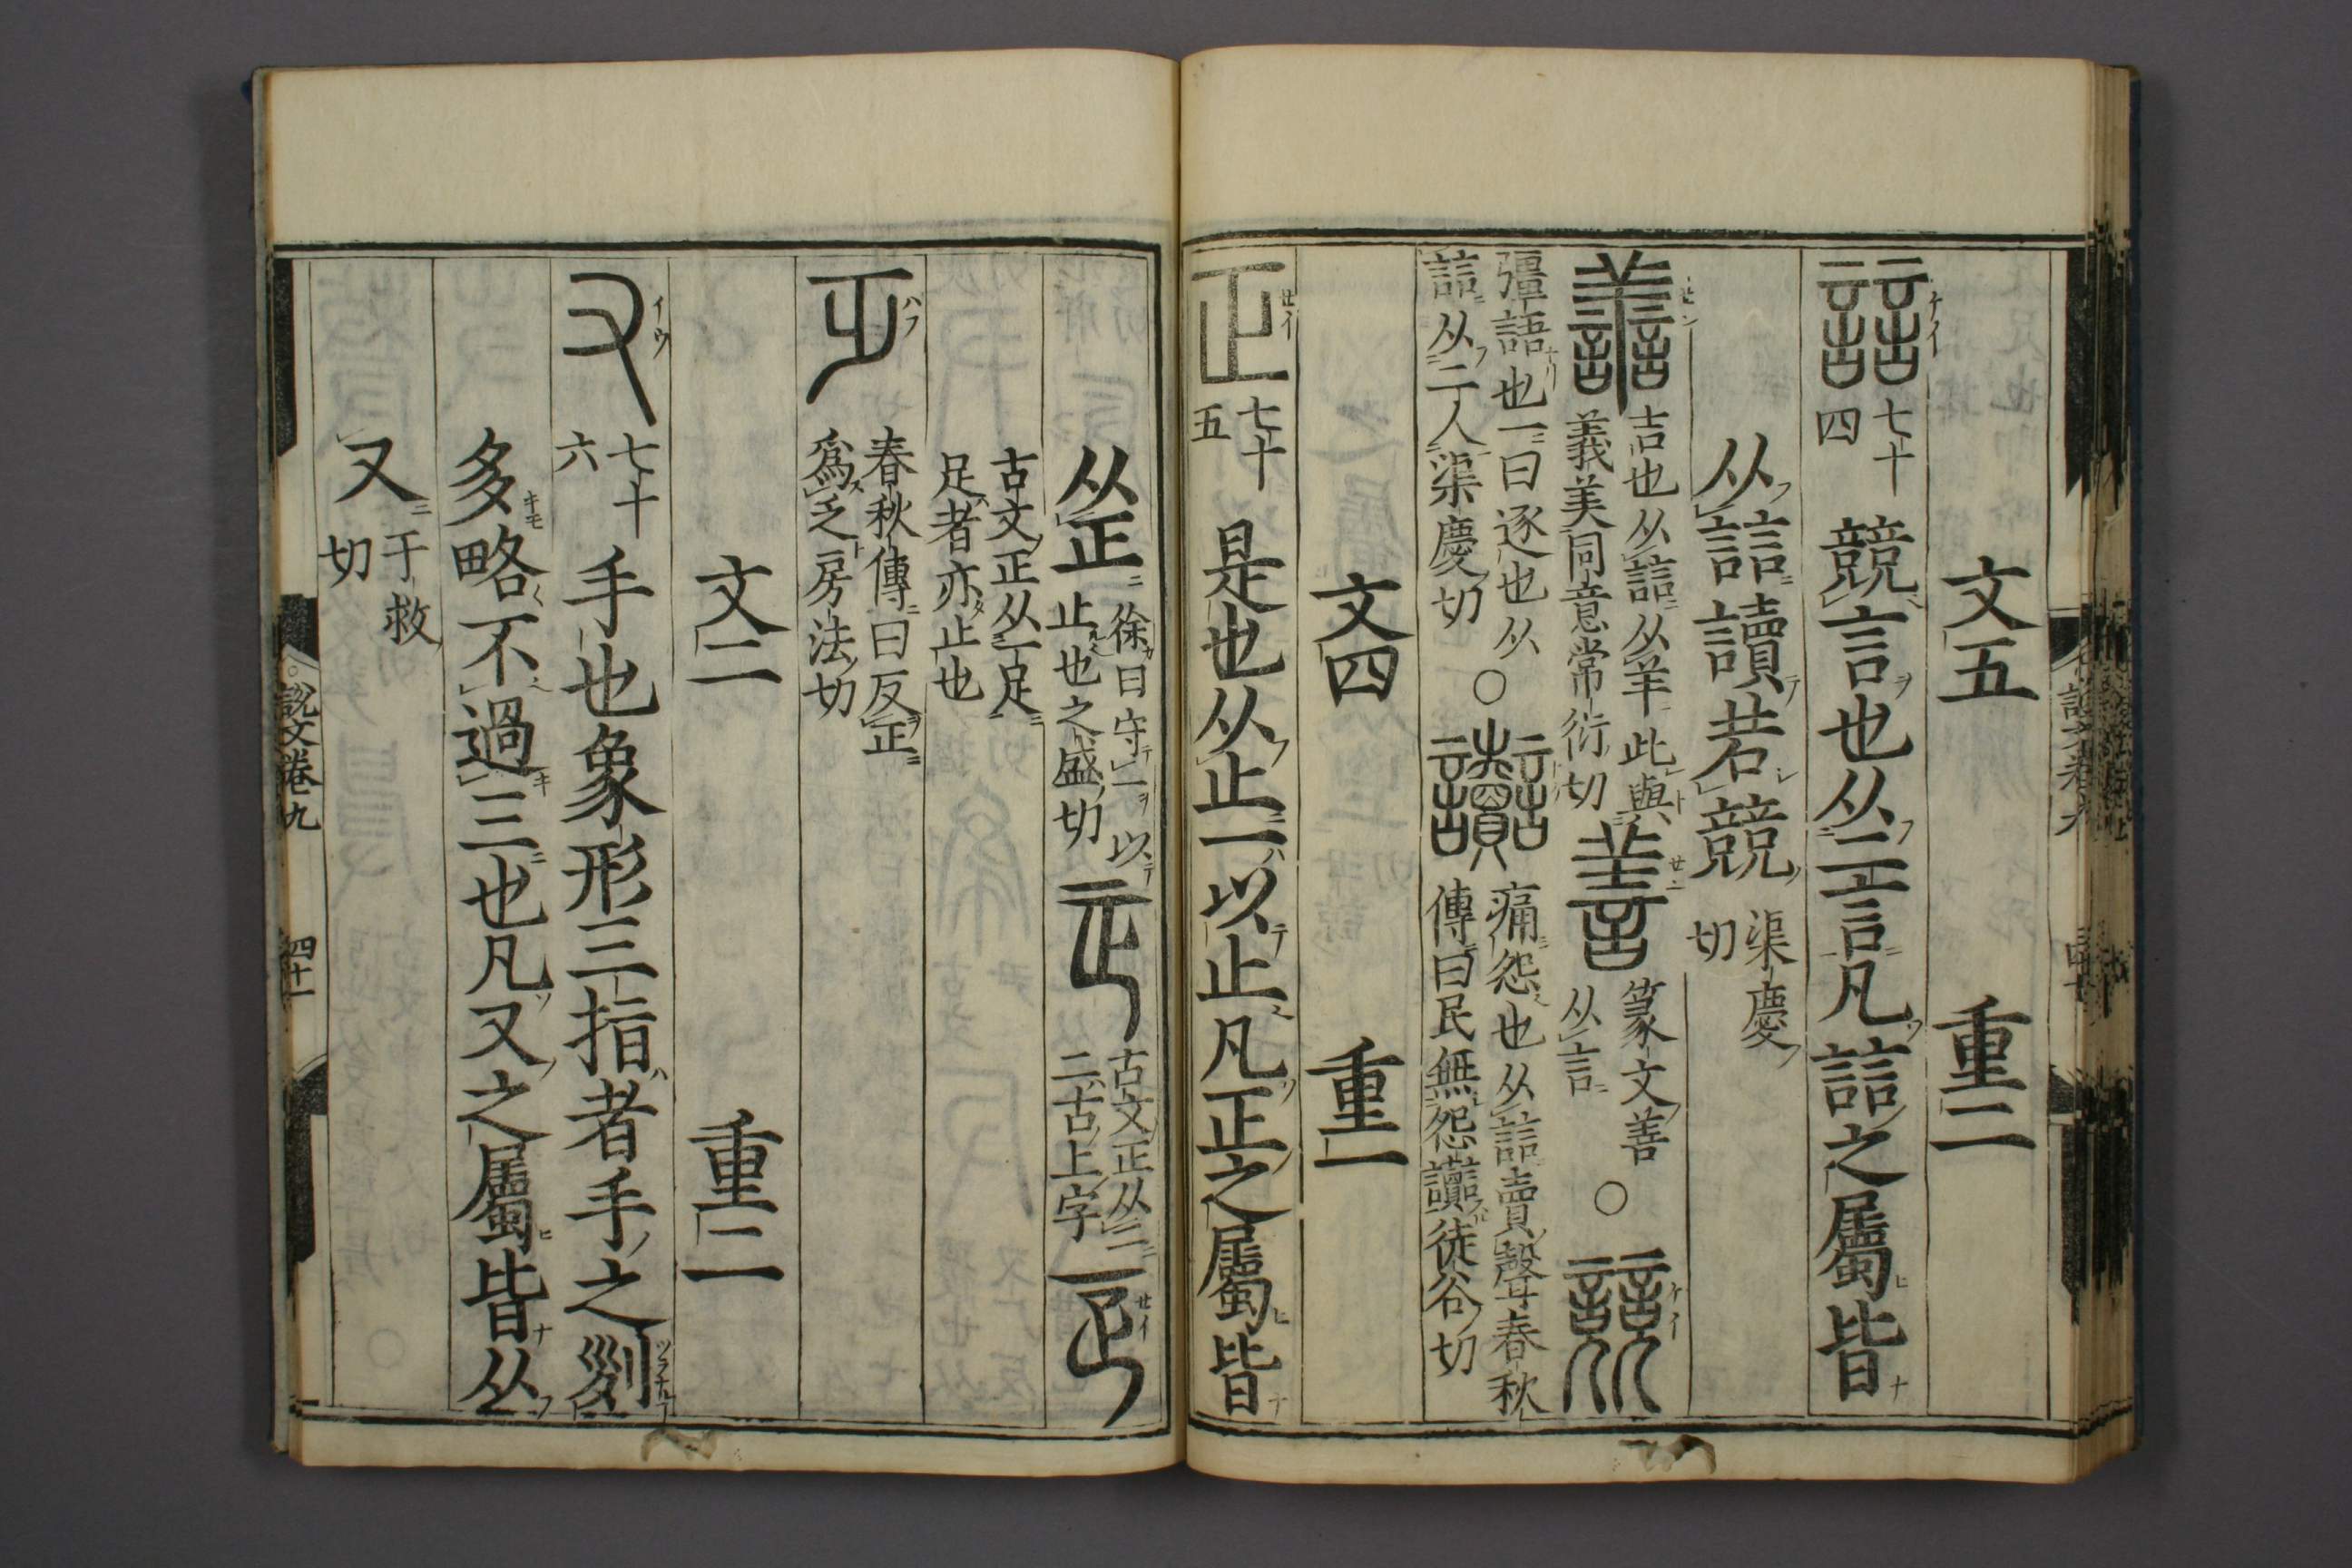 文五 重二
誩 七十四 競言也从二言凡誩之屬皆
从誩讀若競 渠慶切
譱 吉也从誩从羊此與義美同意常衍切 善 篆文善从言 ○ 競
彊語也一曰逐也从誩从二人渠慶切 ○ 讟 痛怨也从誩賣聲春秋傳曰民無怨讟徒谷切
文四 重一
正 七十五 是也从止一以止凡正之屬皆
从正 徐曰守一以止也之盛切 𤴓 古文正从二二古上字 𤴔
古文正从一足足者亦止也
乏 春秋傳曰反正爲乏房法切
文二 重二
又 七十六 手也象形三指者手之𠛱
多略不過三也凡又之屬皆从
又 于救切
說文卷九 四十一